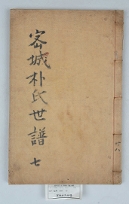 密城朴氏世譜 七